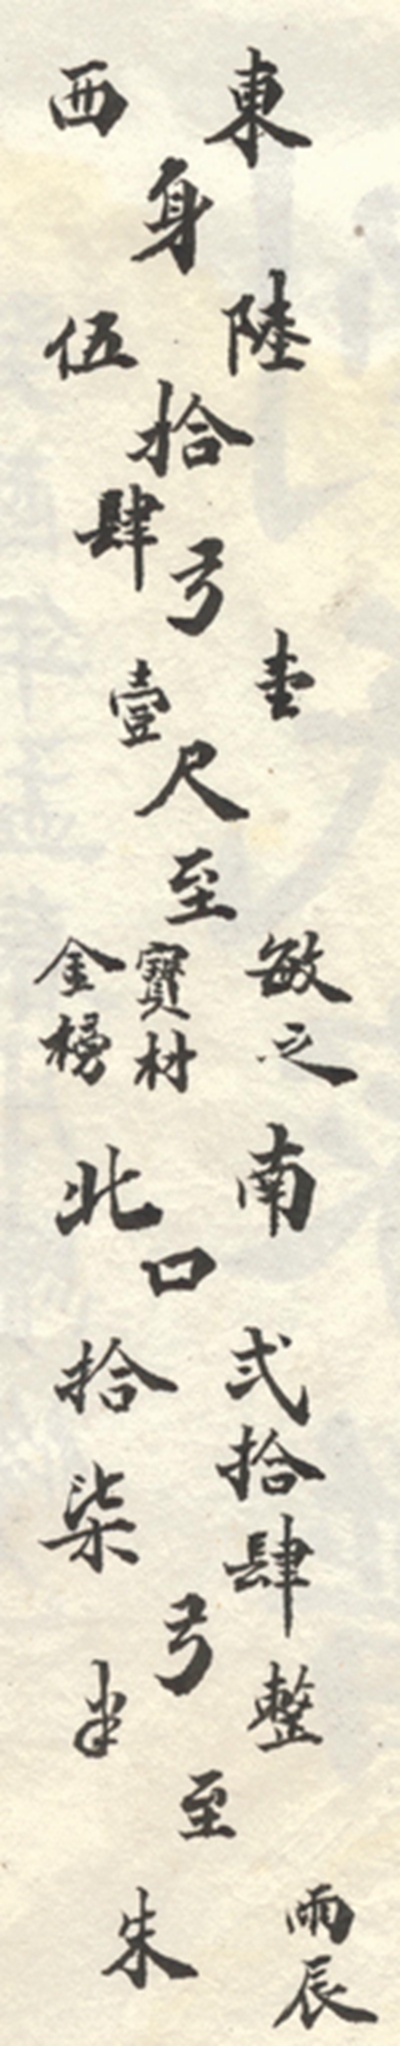 東 西
身
陸 伍
拾
肆
弓
壹 壹
尺
至
敏之 寶材 金榜
南 北
口
弍拾肆 拾柒
弓
整 半
至
雨辰 朱